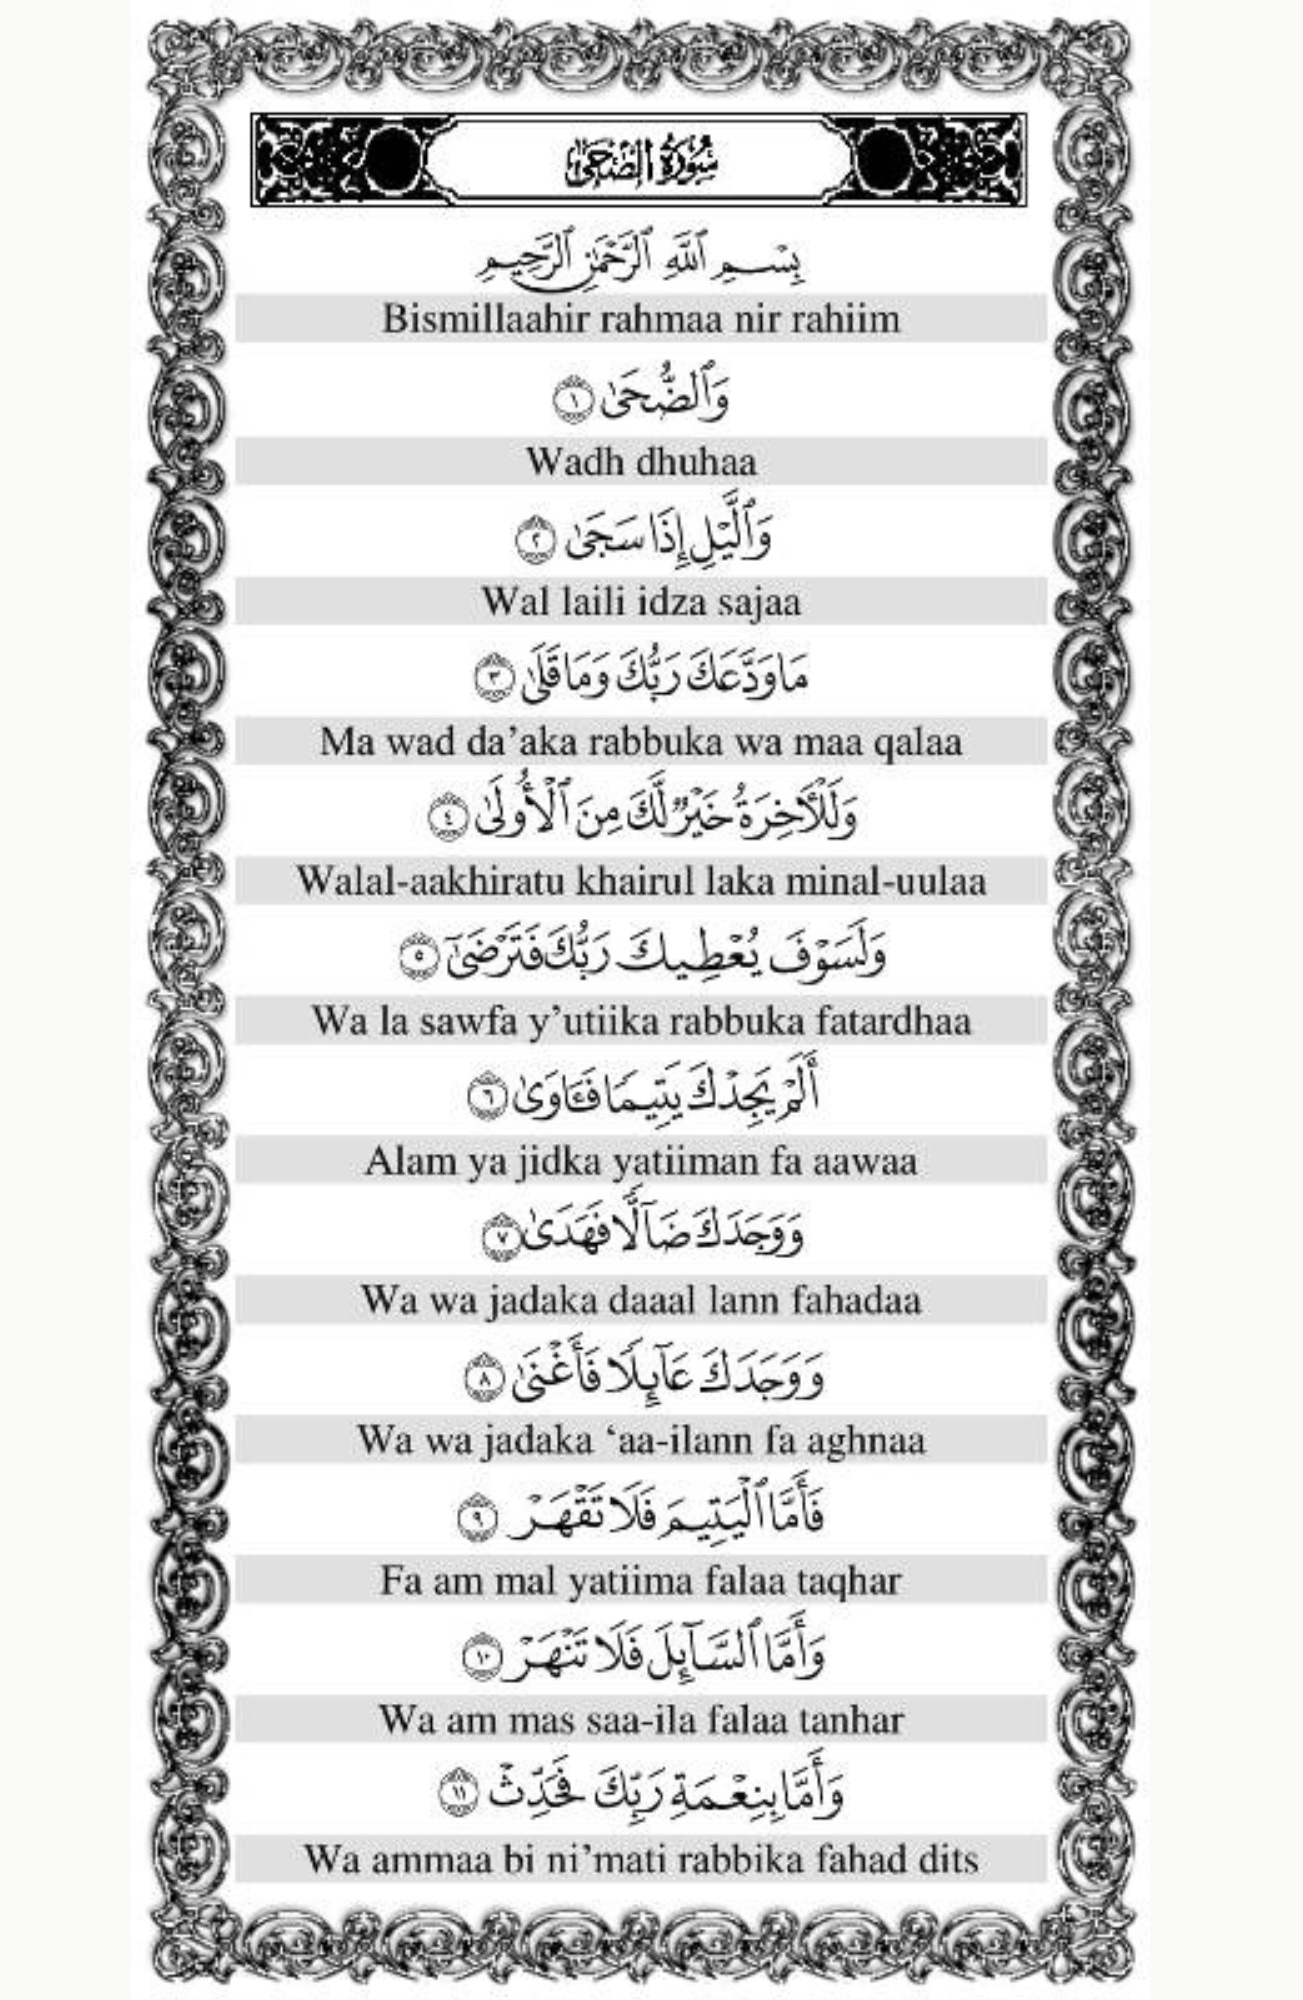 سُورَةُ الضُّحَىٰ
بِسْمِ ٱللَّهِ ٱلرَّحْمَٰنِ ٱلرَّحِيمِ
Bismillaahir rahmaa nir rahiim
وَٱلضُّحَىٰ ١
Wadh dhuhaa
وَٱلَّيْلِ إِذَا سَجَىٰ ٢
Wal laili idza sajaa
مَا وَدَّعَكَ رَبُّكَ وَمَا قَلَىٰ ٣
Ma wad da’aka rabbuka wa maa qalaa
وَلَلْـَٔاخِرَةُ خَيْرٌ لَّكَ مِنَ ٱلْأُولَىٰ ٤
Walal-aakhiratu khairul laka minal-uulaa
وَلَسَوْفَ يُعْطِيكَ رَبُّكَ فَتَرْضَىٰٓ ٥
Wa la sawfa y’utiika rabbuka fatardhaa
أَلَمْ يَجِدْكَ يَتِيمًا فَـَٔاوَىٰ ٦
Alam ya jidka yatiiman fa aawaa
وَوَجَدَكَ ضَآلًّا فَهَدَىٰ ٧
Wa wa jadaka daaal lann fahadaa
وَوَجَدَكَ عَآئِلًا فَأَغْنَىٰ ٨
Wa wa jadaka ‘aa-ilann fa aghnaa
فَأَمَّا ٱلْيَتِيمَ فَلَا تَقْهَرْ ٩
Fa am mal yatiima falaa taqhar
وَأَمَّا ٱلسَّآئِلَ فَلَا تَنْهَرْ ١٠
Wa am mas saa-ila falaa tanhar
وَأَمَّا بِنِعْمَةِ رَبِّكَ فَحَدِّثْ ١١
Wa ammaa bi ni’mati rabbika fahad dits